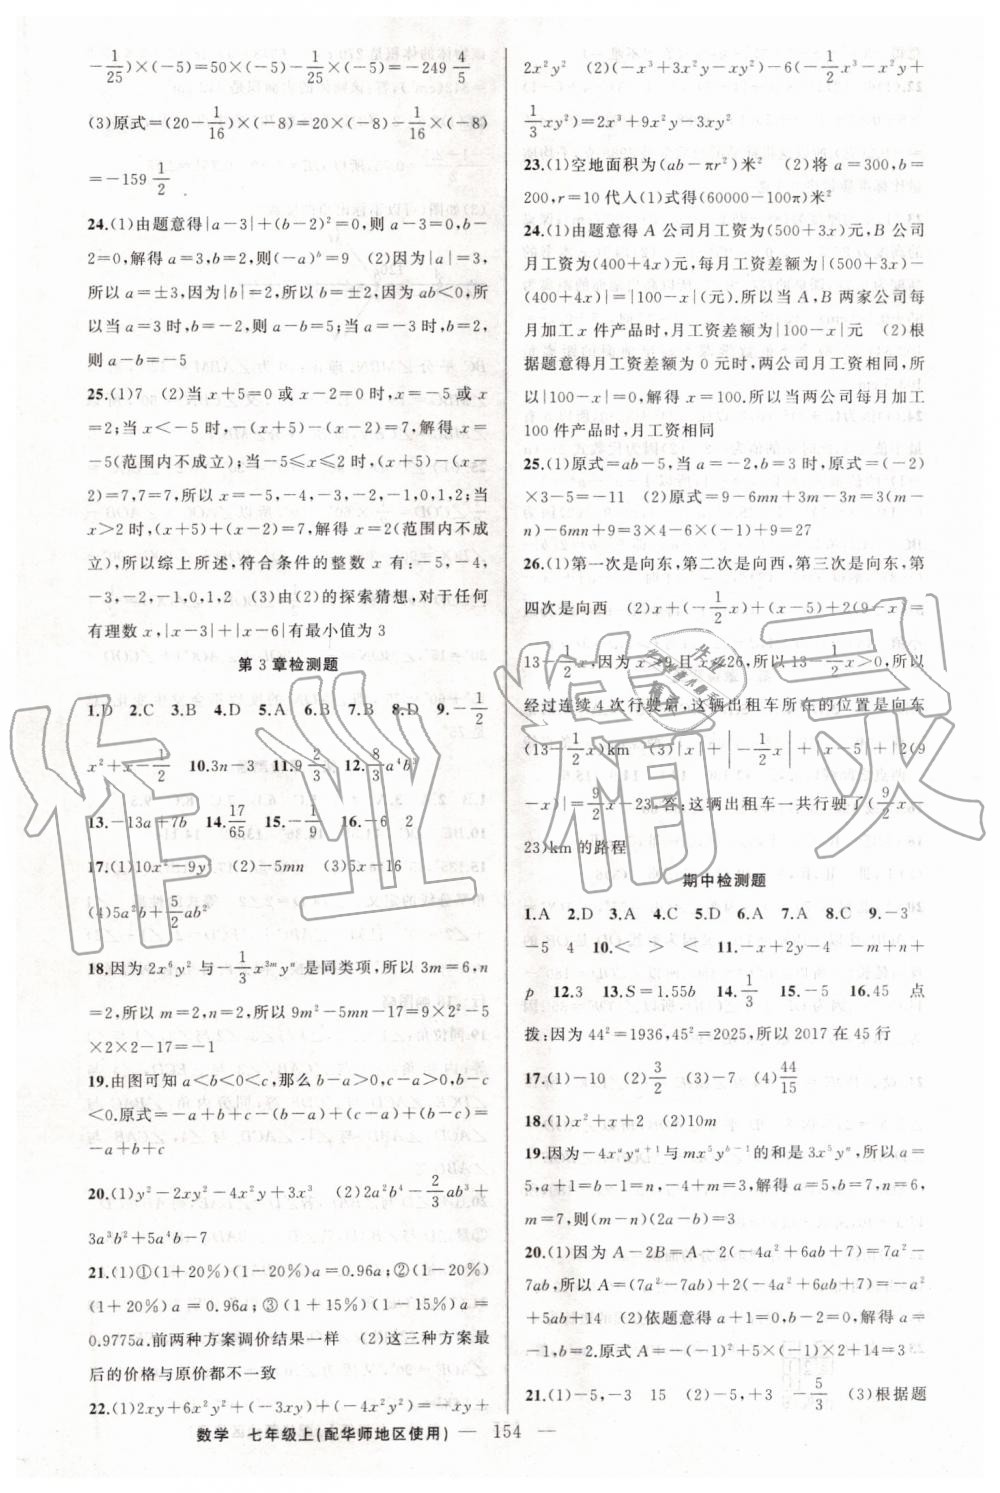 −1/25)×(−5)=50×(−5)−1/25×(−5)=−249 4/5
(3)原式=(20−1/16)×(−8)=20×(−8)−1/16×(−8)
=−159 1/2
24.(1)由题意得|a−3|+(b−2)²=0,则a−3=0,b−
2=0,解得a=3,b=2,则(−a)ᵇ=9 (2)因为|a|=3,
所以a=±3,因为|b|=2,所以b=±2,因为ab<0,所
以当a=3时,b=−2,则a−b=5;当a=−3时,b=2,
则a−b=−5
25.(1)7 (2)当x+5=0或x−2=0时,x=−5或x
=2;当x<−5时,−(x+5)−(x−2)=7,解得x=
−5(范围内不成立);当−5≤x≤2时,(x+5)−(x−
2)=7,7=7,所以x=−5,−4,−3,−2,−1,0,1,2;当
x>2时,(x+5)+(x−2)=7,解得x=2(范围内不成
立),所以综上所述,符合条件的整数x有:−5,−4,
−3,−2,−1,0,1,2 (3)由(2)的探索猜想,对于任何
有理数x,|x−3|+|x−6|有最小值为3
第3章检测题
1.D 2.C 3.B 4.D 5.A 6.B 7.B 8.D 9.−1/2
x²+x−1/2 10.3n−3 11.9 2/3 12.8/3a⁴b³
13.−13a+7b 14.17/65 15.−1/9 16.−6 2
17.(1)10x²−9y (2)−5mn (3)5x−16
(4)5a²b+5/2ab²
18.因为2x⁶y²与−1/3x³ᵐyⁿ是同类项,所以3m=6,n
=2,所以m=2,n=2,所以9m²−5mn−17=9×2²−5
×2×2−17=−1
19.由图可知a<b<0<c,那么b−a>0,c−a>0,b−c
<0.原式=−a+b+c−(b−a)+(c−a)+(b−c)=
−a+b+c
20.(1)y²−2xy²−4x²y+3x³ (2)2a²b⁴−2/3ab³+
3a³b²+5a⁴b−7
21.(1)①(1+20%)(1−20%)a=0.96a;②(1−20%)
(1+20%)a=0.96a;③(1+15%)(1−15%)a=
0.9775a.前两种方案调价结果一样 (2)这三种方案最
后的价格与原价都不一致
22.(1)2xy+6x²y²+(−3xy)+(−4x²y²)=−xy+
2x²y² (2)(−x³+3x²y−xy²)−6(−1/2x³−x²y+
1/3xy²)=2x³+9x²y−3xy²
23.(1)空地面积为(ab−πr²)米² (2)将a=300,b=
200,r=10代入(1)式得(60000−100π)米²
24.(1)由题意得A公司月工资为(500+3x)元,B公司
月工资为(400+4x)元,每月工资差额为|(500+3x)−
(400+4x)|=|100−x|(元).所以当A,B两家公司每
月加工x件产品时,月工资差额为|100−x|元 (2)根
据题意得月工资差额为0元时,两公司月工资相同,所
以|100−x|=0,解得x=100.所以当两公司每月加工
100件产品时,月工资相同
25.(1)原式=ab−5,当a=−2,b=3时,原式=(−2)
×3−5=−11 (2)原式=9−6mn+3m−3n=3(m−
n)−6mn+9=3×4−6×(−1)+9=27
26.(1)第一次是向东,第二次是向西,第三次是向东,第
四次是向西 (2)x+(−1/2x)+(x−5)+2(9−x)=
13−1/2x,因为x>9且x<26,所以13−1/2x>0,所以
经过连续4次行驶后,这辆出租车所在的位置是向东
(13−1/2x)km (3)|x|+|−1/2x|+|x−5|+|2(9
−x)|=9/2x−23.答:这辆出租车一共行驶了(9/2x−
23)km的路程
期中检测题
1.A 2.D 3.A 4.C 5.D 6.A 7.A 8.C 9.−3
−5 4 10.< > < 11.−x+2y−4 −m+n+
p 12.3 13.S=1.55b 14.1/3 15.−5 16.45 点
拨:因为44²=1936,45²=2025,所以2017在45行
17.(1)−10 (2)3/2 (3)−7 (4)44/15
18.(1)x²+x+2 (2)10m
19.因为−4xᵃyᵃ⁺¹与mx⁵yᵇ⁻¹的和是3x⁵yⁿ,所以a=
5,a+1=b−1=n,−4+m=3,解得a=5,b=7,n=6,
m=7,则(m−n)(2a−b)=3
20.(1)因为A−2B=A−2(−4a²+6ab+7)=7a²−
7ab,所以A=(7a²−7ab)+2(−4a²+6ab+7)=−a²
+5ab+14 (2)依题意得a+1=0,b−2=0,解得a=
−1,b=2.原式A=−(−1)²+5×(−1)×2+14=3
21.(1)−5 −3 15 (2)−5,+3 −5/3 (3)根据题
数学 七年级上(配华师地区使用) — 154 —
作业精灵